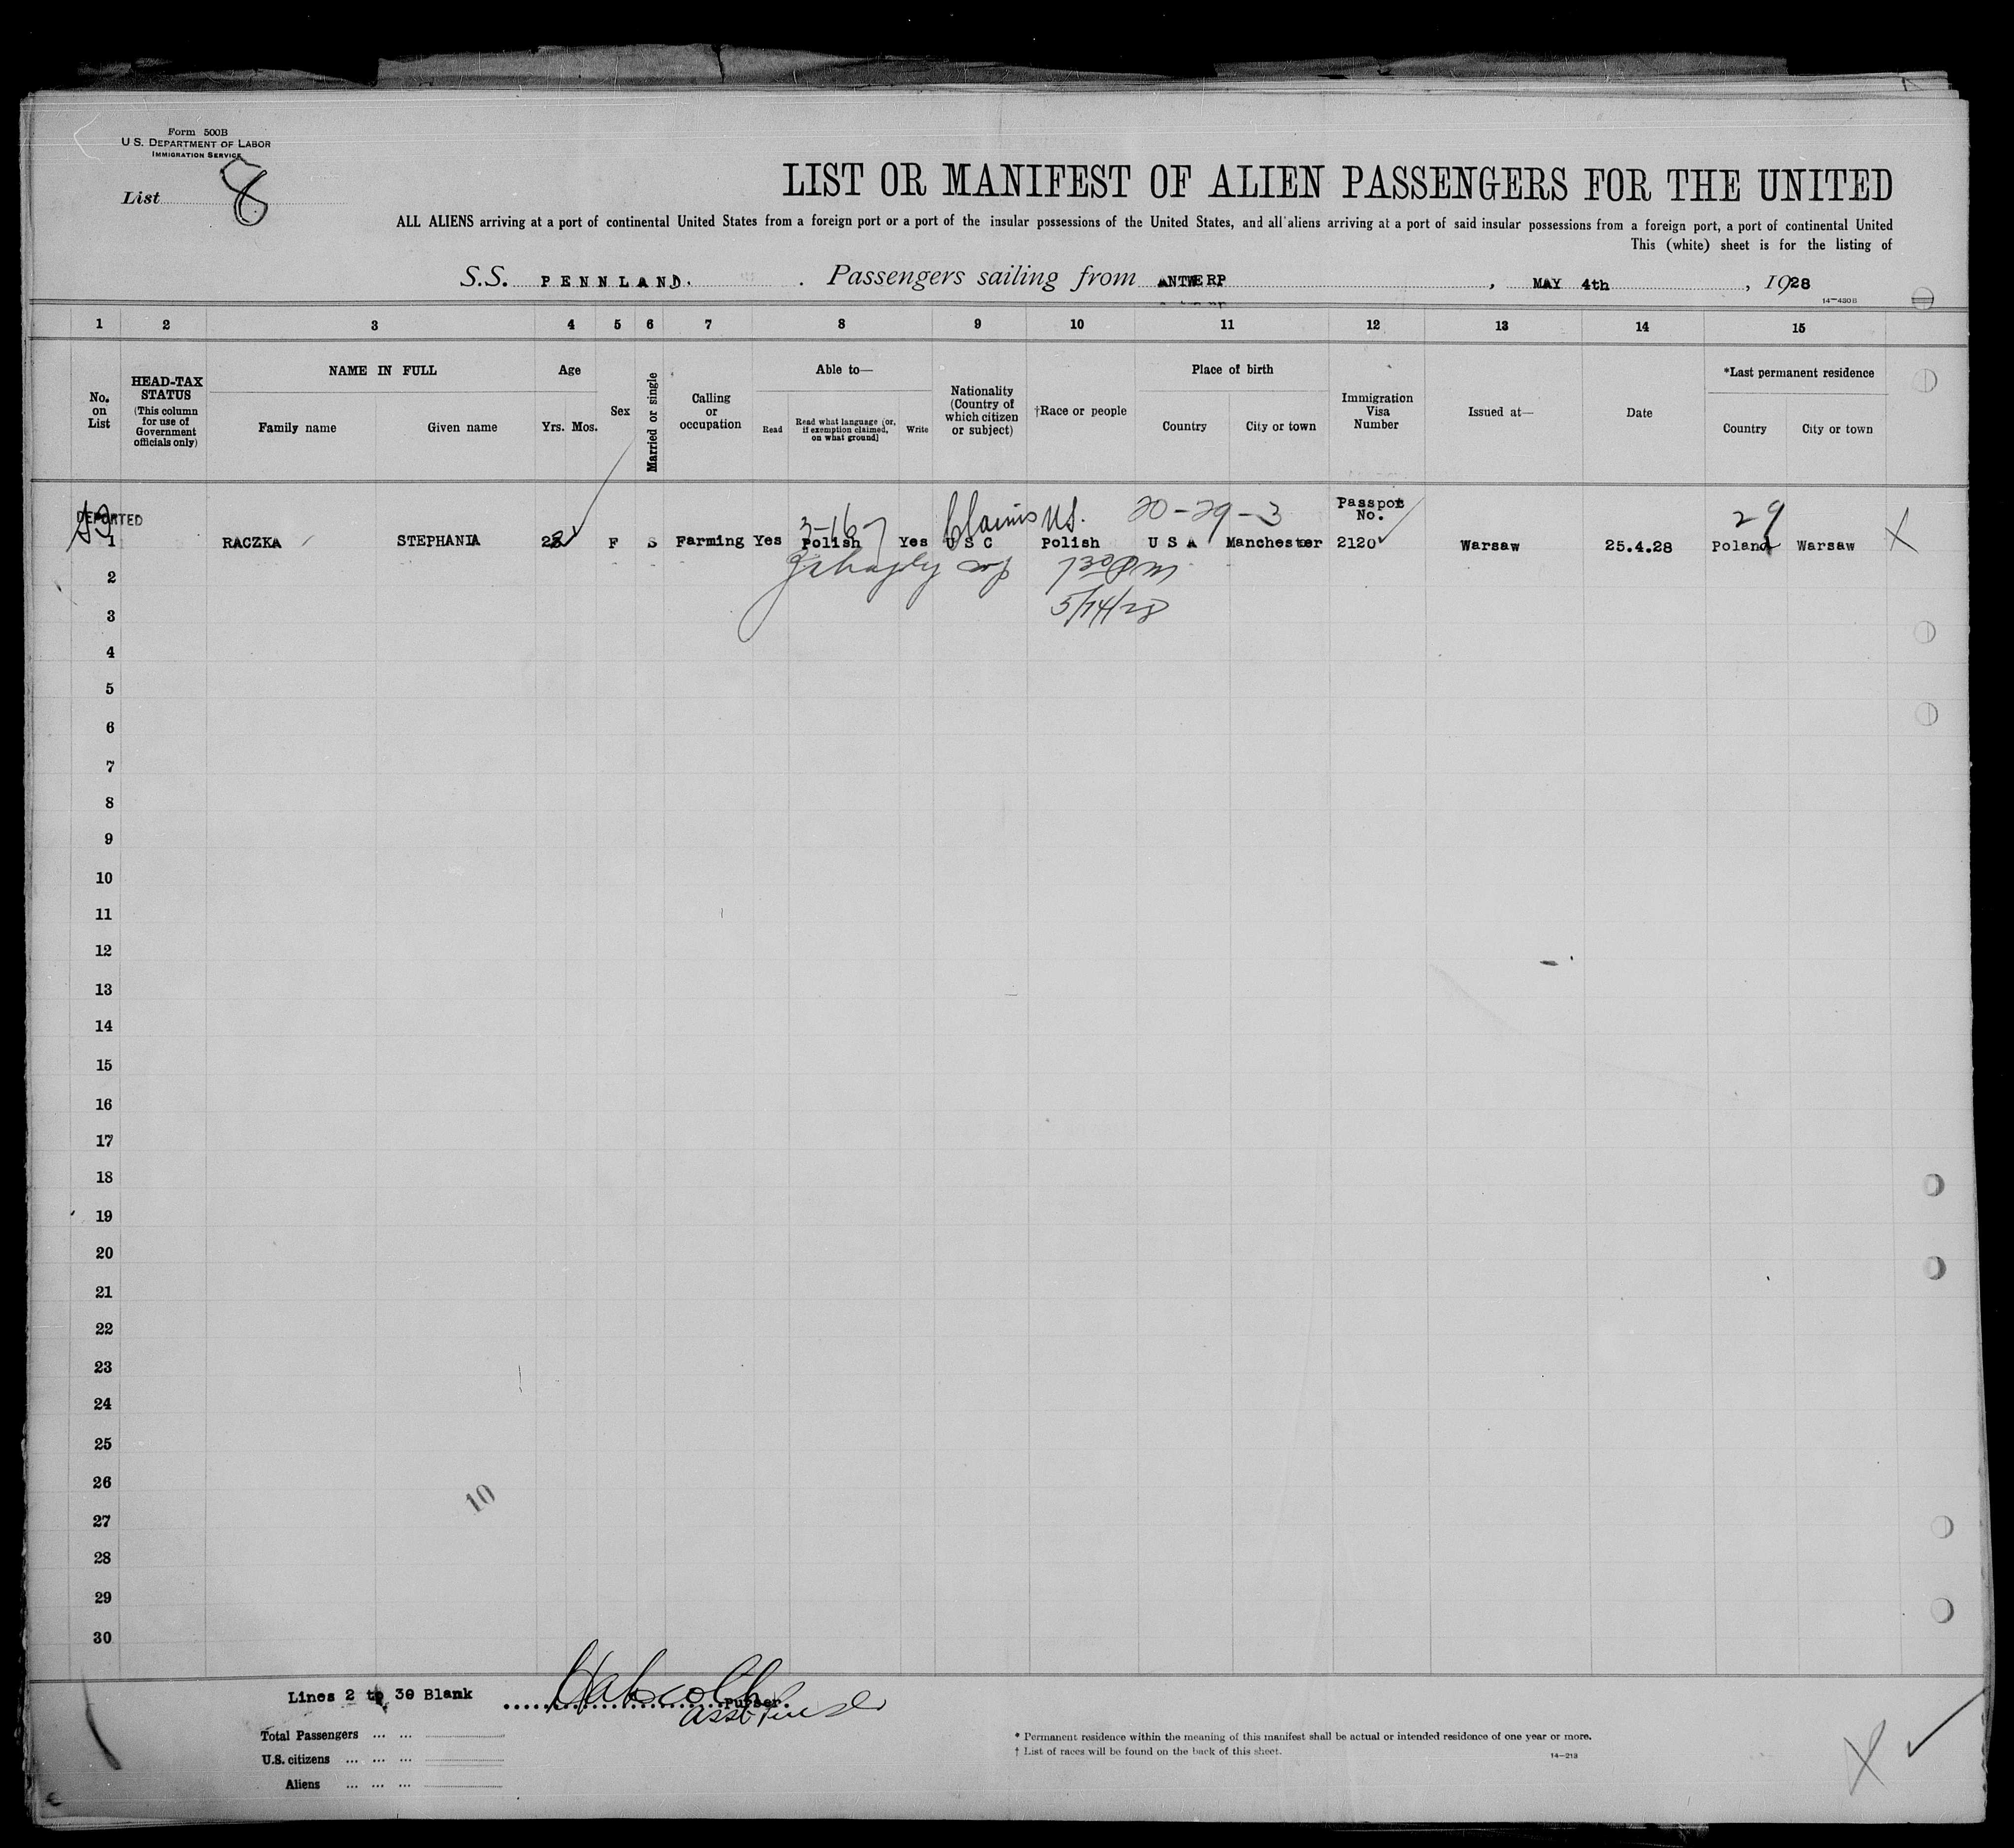 Form 500B
U.S. DEPARTMENT OF LABOR
IMMIGRATION SERVICE
List 8
LIST OR MANIFEST OF ALIEN PASSENGERS FOR THE UNITED
ALL ALIENS arriving at a port of continental United States from a foreign port or a port of the insular possessions of the United States, and all aliens arriving at a port of said insular possessions from a foreign port, a port of continental United
This (white) sheet is for the listing of
S.S. PENNLAND. . Passengers sailing from ANTWERP , MAY 4th , 1928
14—430B
1 2 3 4 5 6 7 8 9 10 11 12 13 14 15
No. on List
HEAD-TAX STATUS (This column for use of Government officials only)
NAME IN FULL
Family name Given name
Age
Yrs. Mos.
Sex
Married or single
Calling or occupation
Able to—
Read Read what language [or, if exemption claimed, on what ground] Write
Nationality (Country of which citizen or subject)
†Race or people
Place of birth
Country City or town
Immigration Visa Number
Issued at—
Date
*Last permanent residence
Country City or town
DEPORTED 3-167 Claims US. 20-29-3 Passport No. 29
1 RACZKA STEPHANIA 22 F S Farming Yes Polish Yes U S C Polish U S A Manchester 2120 Warsaw 25.4.28 Poland Warsaw X
2 730 PM
3 5/14/28
4
5
6
7
8
9
10
11
12
13
14
15
16
17
18
19
20
21
22
23
24
25
26
10
27
28
29
30
Lines 2 to 30 Blank Purser.
Asst Purser
Total Passengers ... ...
U.S. citizens ... ... ...
Aliens ... ... ...
* Permanent residence within the meaning of this manifest shall be actual or intended residence of one year or more.
† List of races will be found on the back of this sheet.
14—213
X